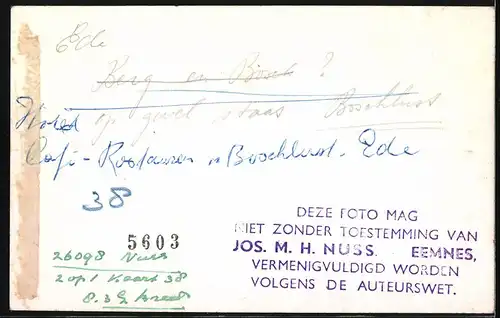 Ede
Berg en Bosch ?
op gevel staat Boschlust
Hotel
Café - Restaurant Boschlust. Ede
38
5603
26098 Nuss
2 op 1 Kaart 38
8.3
DEZE FOTO MAG
NIET ZONDER TOESTEMMING VAN
JOS. M. H. NUSS. EEMNES,
VERMENIGVULDIGD WORDEN
VOLGENS DE AUTEURSWET.